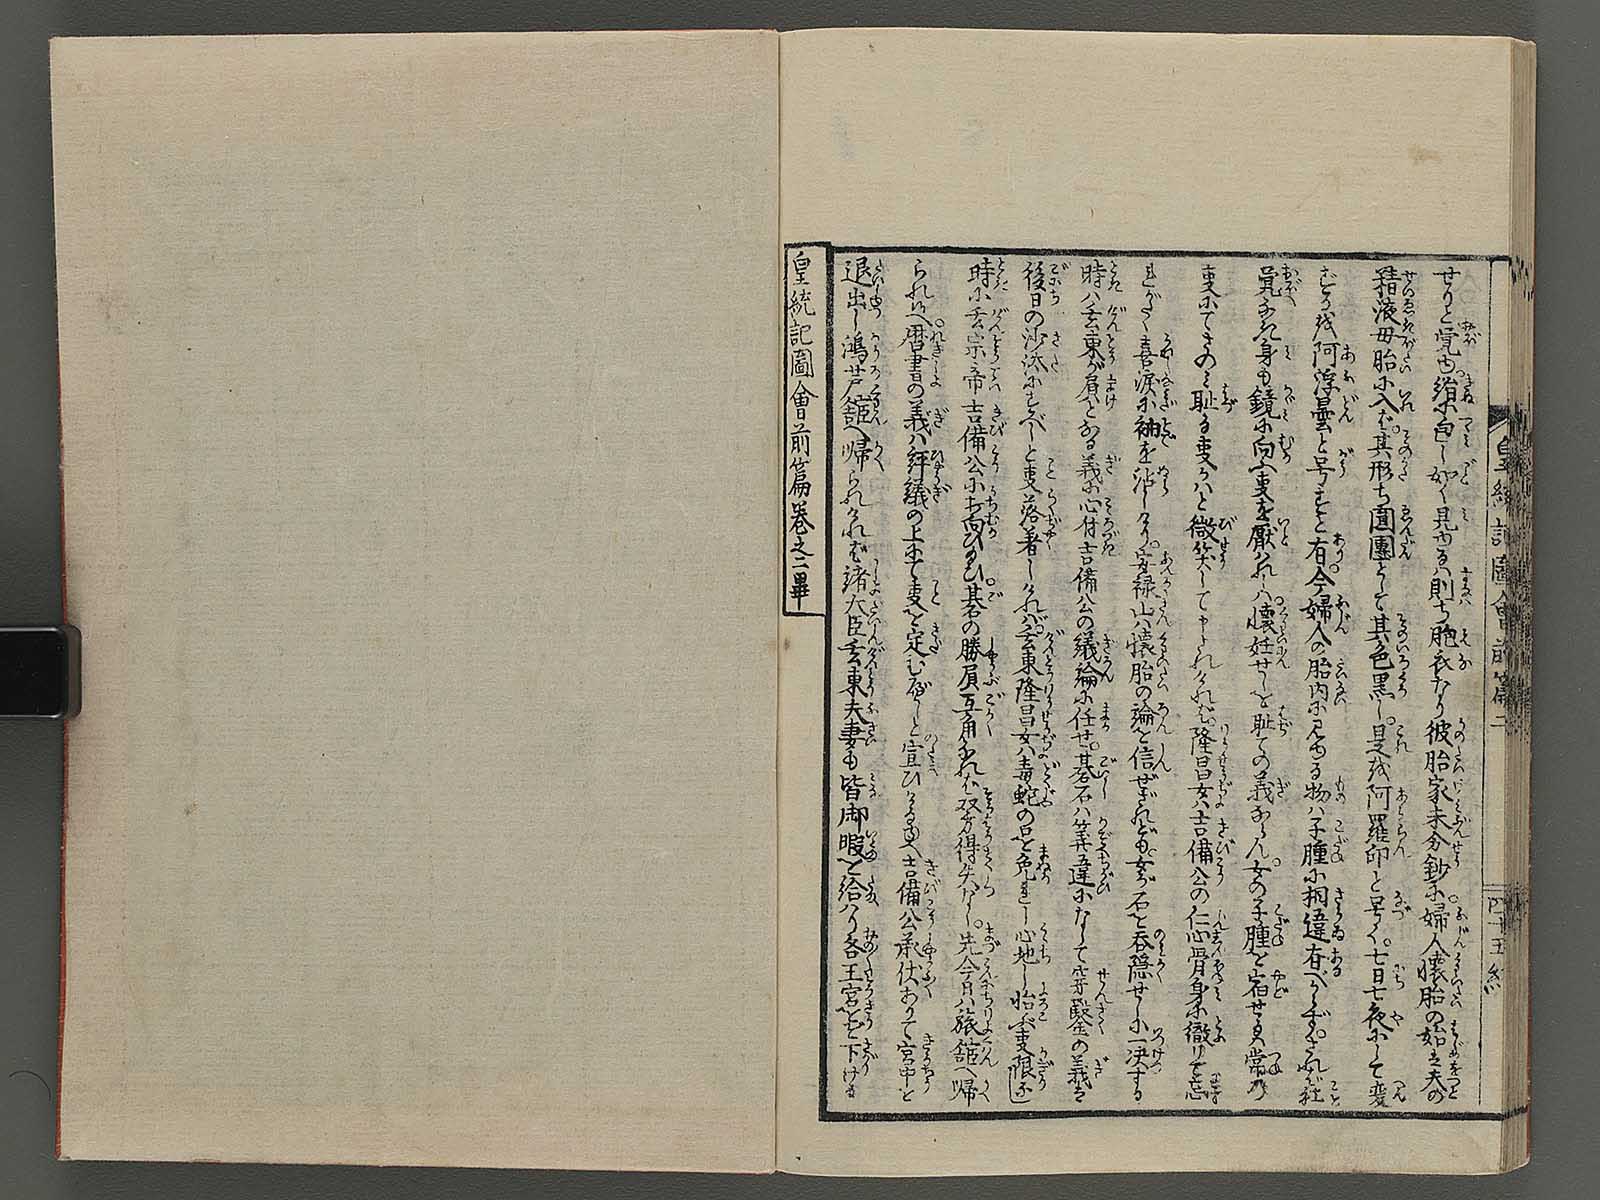 せりと覚ゆ絹に包し如く見ゆるハ則ち胞衣なり彼胎家未分鈔に婦人懐胎の始ハ夫の
精液母胎に入ば其形ち圓團として其色黒し是を阿羅印と号く七日七夜にして変
ずるを阿浮曇と号すと有今婦人の胎内に見ゆる物ハ子腫に相違有べからずされば
覚なき身も鏡に向ふ事を厭れしハ懐妊せしを耻ての義ならん女の子腫を宿せるハ常の
事にてさのミ耻る事かハと微笑して申されければ隆昌女ハ吉備公の仁心骨身に徹りて忘
れがたく喜涙に袖を沾しけり安禄山ハ懐胎の論を信ぜざれども女が石を呑隠せしに一决する
時ハ玄東が負となる義に心付吉備公の議論に任せ碁石ハ算違になして穿鑿の義を
後日の沙汰にすべしと事落著しければ玄東隆昌女ハ毒蛇の口を免れし心地し怡ぶ事限なし
時に玄宗帝吉備公にち向ひ玉ひ碁の勝負互角なれば双方得失なし先今日ハ旅舘へ帰
られよ暦書の義ハ評議の上にて事を定む可しと宣ひける吉備公承伏ありて宮中を
退出し鴻芦舘へ帰られければ諸大臣玄東夫妻も皆御暇を給ハり各王宮を下けり
皇統記圖會前篇巻之二畢
皇統記圖會前篇二
四十五終